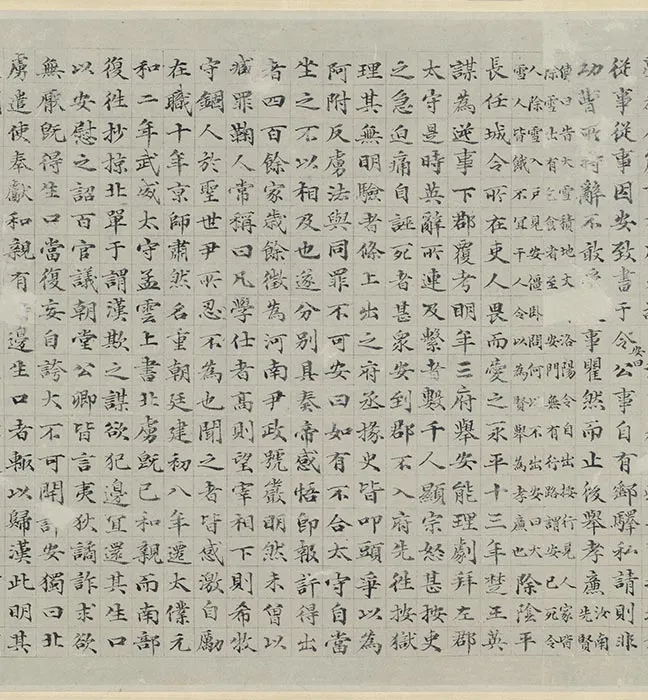 從事從事因安致書于令安曰公事自有郵驛私請則非
功曹所持辭不敢 事瞿然而止後舉孝廉汝南先賢
傳曰皆大雪積地丈 洛陽令自出按行見人家皆
除雪出有乞食者至 安門無有行路謂安已死令
人除雪入戶見安僵卧問何以不出安曰大
雪人皆餓不宜干人令以為賢舉為孝廉也
除陰平
長任城令所在吏人畏而愛之永平十三年楚王英
謀為逆事下郡覆考明年三府舉安能理劇拜左郡
太守是時英辭所連及繫者數千人顯宗怒甚按史
之急迫痛自誣死者甚衆安到郡不入府先往按獄
理其無明驗者條上出之府丞掾史皆叩頭爭以為
阿附反虜法與同罪不可安曰如有不合太守自當
坐之不以相及也遂分別具奏帝感悟即報許得出
者四百餘家歲餘徵為河南尹政號嚴明然未曾以
臧罪鞠人常稱曰凡學仕者高則望宰相下則希牧
守錮人於聖世尹所忍不為也聞之者皆感激自勵
在職十年京師肅然名重朝廷建初八年遷太僕元
和二年武威太守孟雲上書北虜既已和親而南部
復往抄掠北單于謂漢欺之謀欲犯邊宜還其生口
以安慰之詔百官議朝堂公卿皆言夷狄譎詐求欲
無厭既得生口當復妄自誇大不可開許安獨曰北
虜遣使奉獻和親有 邊生口者輒以歸漢此明其